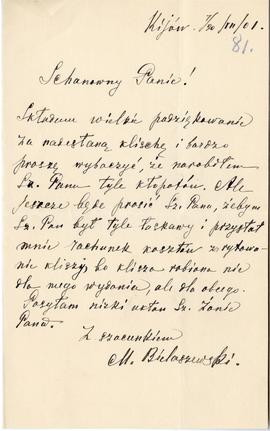 Kijów. 7/20/VII/01.
81.
Szhanowny Panie!
Składam wielkie podziękowanie
za nadesłaną kliszę i bardzo
proszę wybaczyć, że narobiłem
Sz. Panu tyle kłopotów. Ale
jeszcze będę prosić Sz. Pana, żebym
Sz. Pan był tyle łaskawy i przysłał
mnie rachunek kosztów zrysowa-
nie kliszy, bo klisza robiona nie
dla mego wydania, ale dla obcego.
Posyłam nizki ukłon Sz. Żonie
Pana.
Z szacunkiem
M. Bielaszewski.